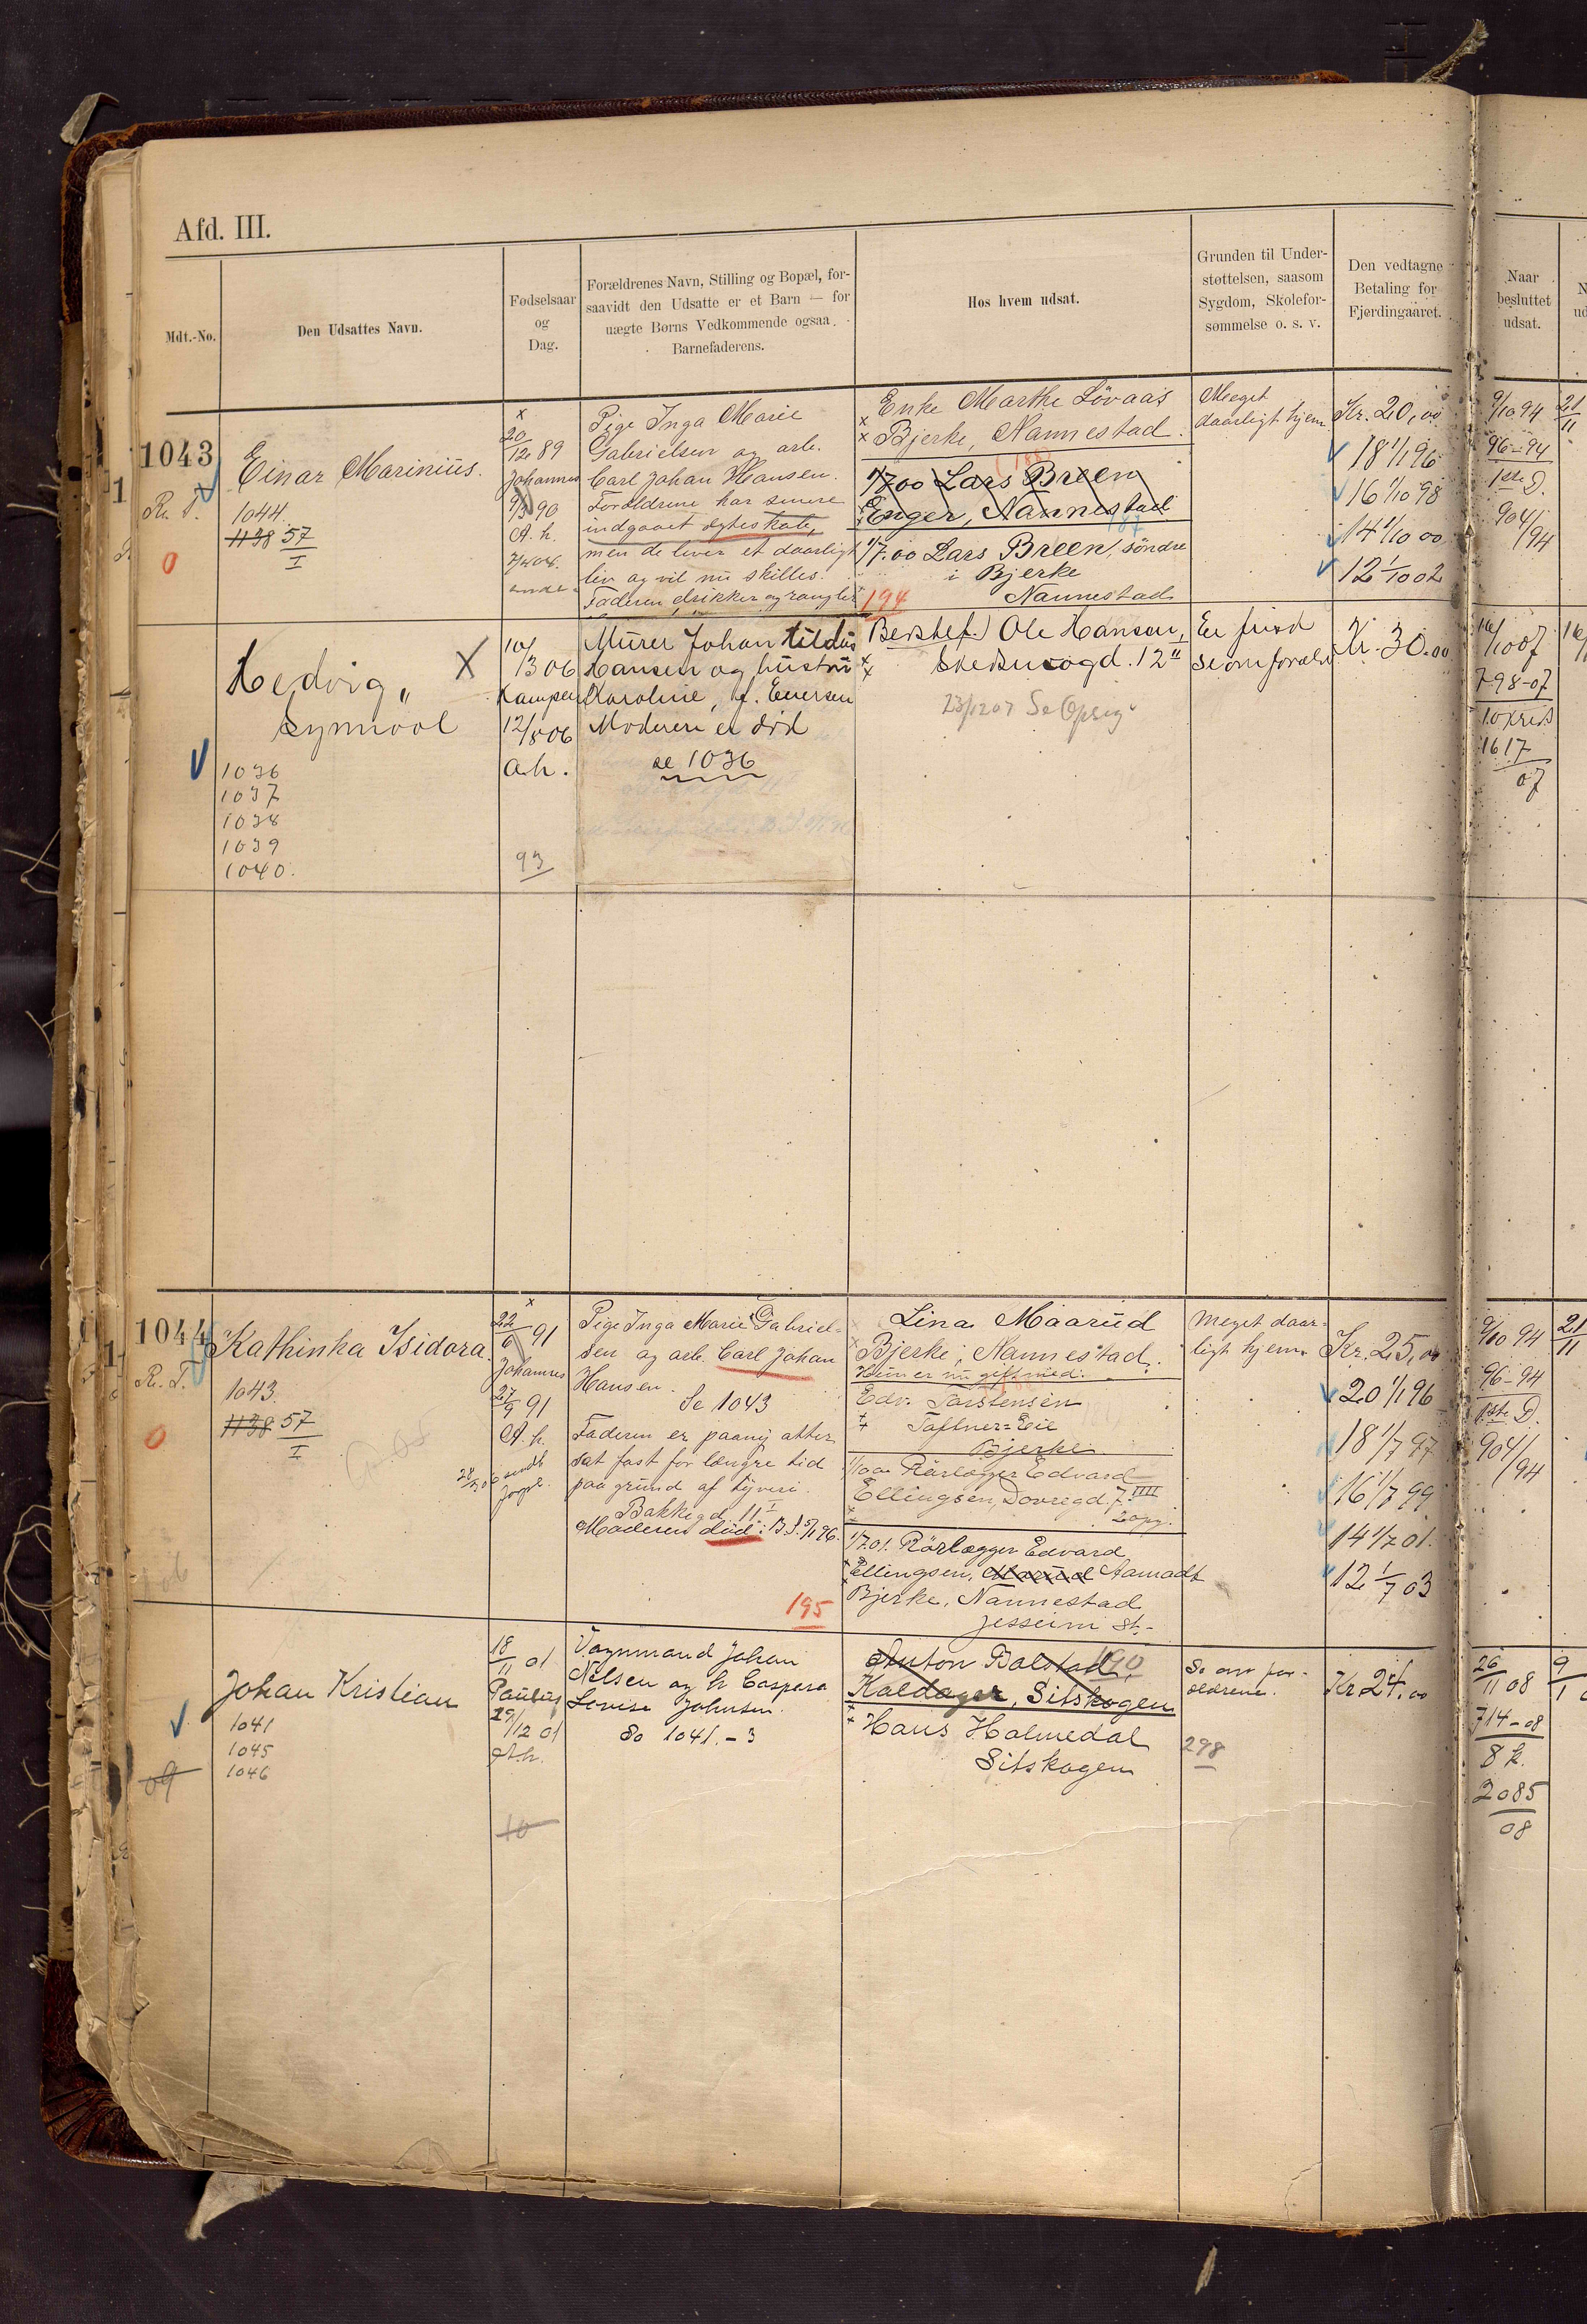 Afd. III.
Mdt.-No.
Den Udsattes Navn.
Fødselsaar
og
Dag.
Forældrenes Navn, Stilling og Bopæl, for-
saavidt den Udsatte er et Barn — for
uægte Børns Vedkommende ogsaa
Barnefaderens.
Hos hvem udsat.
Grunden til Under-
støttelsen, saasom
Sygdom, Skolefor-
sømmelse o. s. v.
Den vedtagne
Betaling for
Fjerdingaaret.
Naar
besluttet
udsat.
1043
R. T.
0
Einar Marinius.
1044.
1138 57
I
20/12 89
Johannes
9/3 90
A. h.
Pige Inga Marie
Gabrielsen og arb.
Carl Johan Hansen.
Forældrene har senere
indgaaet ægteskab,
men de lever et daarligt
liv og vil nu skilles.
Faderen drikker og rangler
Enke Marthe Løvaas
Bjerke, Nannestad.
1/7.00 Lars Breen
Enger, Nannestad
1/7.00 Lars Breen, søndre
i Bjerke
Nannestad
194
Meget
daarligt hjem
Kr. 20,00
18 1/1 96
16 1/10 98
14 1/10 00
12 1/10 02
9/10 94
96-94
1ste D.
904/94
21/11
Hedvig
Synnøve
1036
1037
1038
1039
1040.
10/3 06
Kampen
12/8 06
A. h.
93
Murer Johan
Hansen og hustru
Karoline, f. Eversen
Moderen er død
se 1036
Ole Hansen,
12"
23/12 07 Se
Er
Kr. 30.00
16/10 07
798-07
1617
07
1044
R. T.
0
Kathinka Isidora.
1043.
1138 57
I
22/6 91
Johannes
27/9 91
A. h.
Pige Inga Marie Gabriel-
sen og arb. Carl Johan
Hansen.
Se 1043
Faderen er paany atter
sat fast for længre tid
paa grund af tyveri.
Bakkegd. 11 I
Moderen død: B. J. 5/1 96.
195
Lina Maarud
Bjerke, Nannestad.
Hun er nu gift med:
Edv. Torstensen
Taftner-Eie
Bjerke
Rørlægger Edvard
Ellingsen, Dovregd. 7 IIII
1/7.01. Rørlægger Edvard
Ellingsen, Maarud Aamodt
Bjerke, Nannestad
Jessheim St.-
Meget daar-
ligt hjem.
Kr. 25,00
20 1/1 96
18 1/7 97
16 1/7 99
14 1/7 01.
12 1/7 03
9/10 94
96-94
1ste D.
904/94
21/11
Johan Kristian
1041
1045
1046
09
18/11 01
Paulus
29/12 01
A. h.
10
Vognmand Johan
Nilsen og h. Caspara
Lovise Johnsen.
Se 1041.-3
Anton Bolstad,
Kaldager, Sitskogen
Hans Holmedal
Sitskogen
298
Se om for-
ældrene.
Kr. 24.00
26/11 08
714-08
8 k.
2085
08